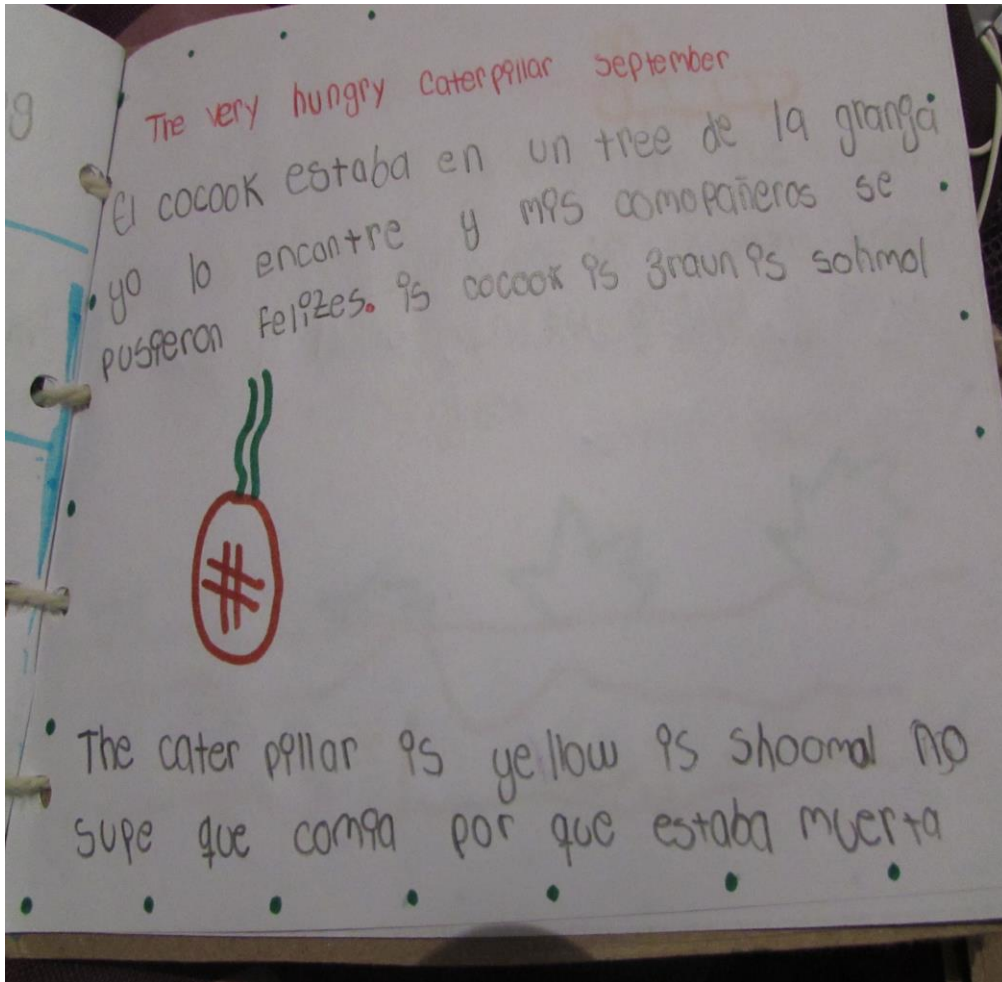 9
The very hungry Caterpillar September
El cocook estaba en un tree de la granga
yo lo encontre y mis comopañeros se
pusieron felizes. is cocook is graun is sohmol
The cater pillar is yellow is shoomal no
supe que comia por que estaba muerta